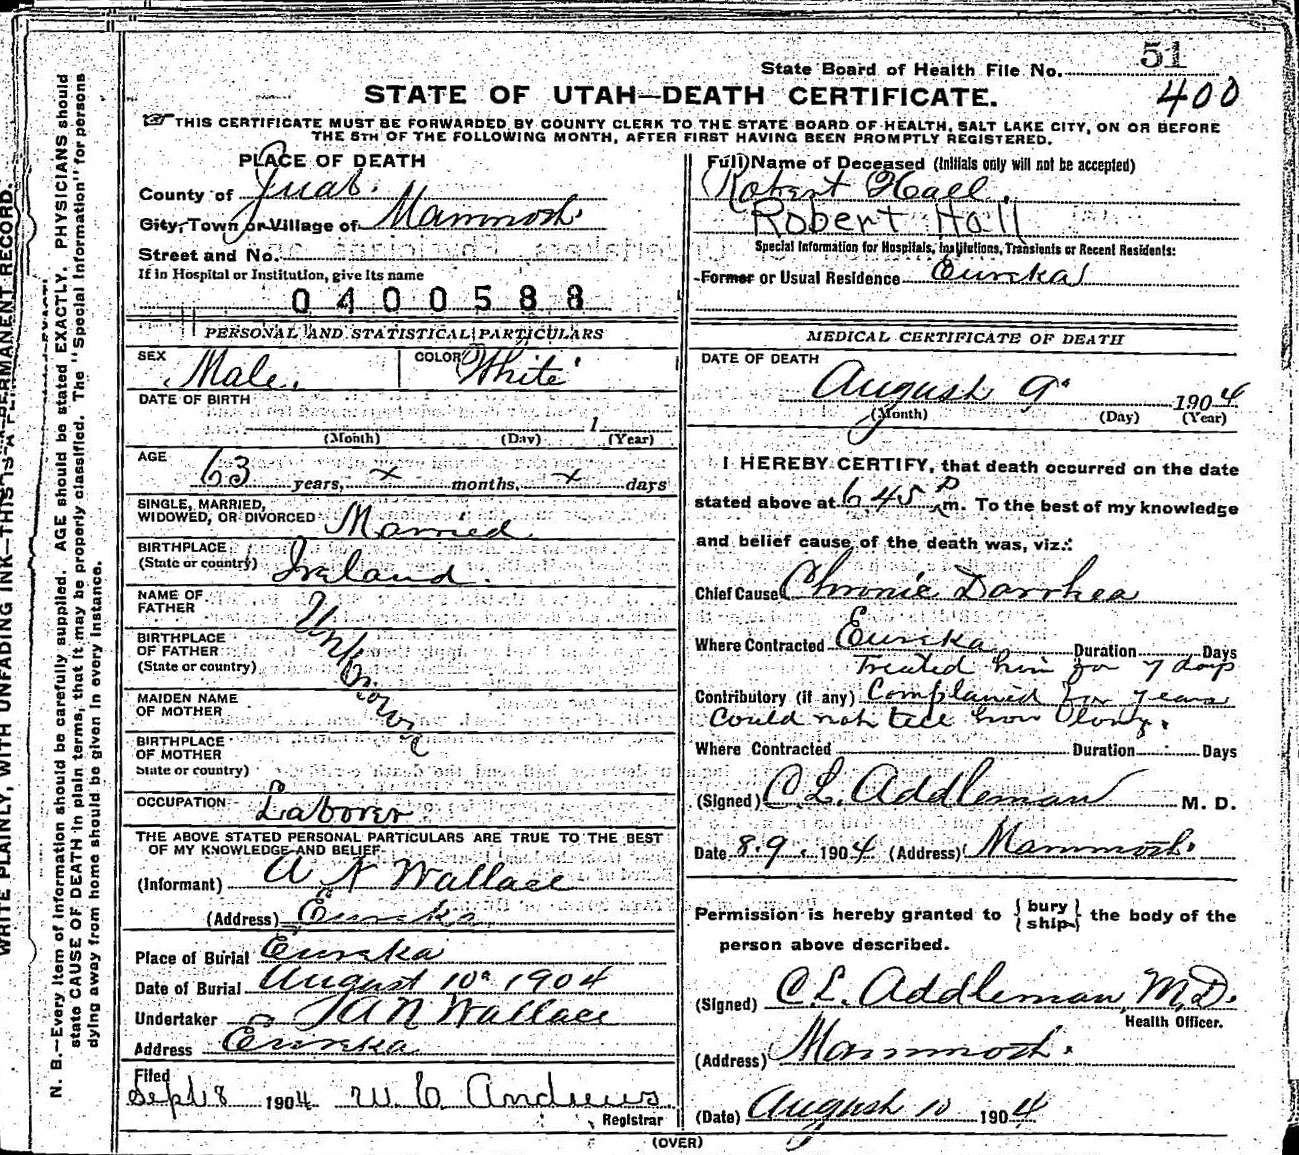 51
State Board of Health File No.
400
STATE OF UTAH—DEATH CERTIFICATE.
THIS CERTIFICATE MUST BE FORWARDED BY COUNTY CLERK TO THE STATE BOARD OF HEALTH, SALT LAKE CITY, ON OR BEFORE
THE 5TH OF THE FOLLOWING MONTH, AFTER FIRST HAVING BEEN PROMPTLY REGISTERED.
PLACE OF DEATH
County of Juab.
City, Town or Village of Mammoth.
Street and No.
If in Hospital or Institution, give its name
0400588
PERSONAL AND STATISTICAL PARTICULARS
SEX Male. COLOR White
DATE OF BIRTH
1
(Month) (Day) (Year)
AGE
63 years, x months, x days
SINGLE, MARRIED,
WIDOWED, OR DIVORCED Married
BIRTHPLACE
(State or country) Ireland.
NAME OF
FATHER
Unknown
BIRTHPLACE
OF FATHER
(State or country)
MAIDEN NAME
OF MOTHER
BIRTHPLACE
OF MOTHER
State or country)
OCCUPATION Laborer
THE ABOVE STATED PERSONAL PARTICULARS ARE TRUE TO THE BEST
OF MY KNOWLEDGE AND BELIEF
(Informant) A N Wallace
(Address) Eureka
Place of Burial Eureka
Date of Burial August 10" 1904
Undertaker A N Wallace
Address Eureka
Filed
Sept 8 1904 W. C. Andrews
Registrar
Full Name of Deceased (Initials only will not be accepted)
Robert Hall.
Robert Hall
Special Information for Hospitals, Institutions, Transients or Recent Residents:
Former or Usual Residence Eureka
MEDICAL CERTIFICATE OF DEATH
DATE OF DEATH
August 9" 1904
(Month) (Day) (Year)
I HEREBY CERTIFY, that death occurred on the date
stated above at 645 P m. To the best of my knowledge
and belief cause of the death was, viz.:
Chief Cause Chronic Darrhea
Where Contracted Eureka Duration Days
Treated him for 7 days
Contributory (if any) Complained for years
Could not tell how long.
Where Contracted Duration Days
(Signed) C L. Addleman M. D.
Date 8.9. 1904 (Address) Mammoth.
Permission is hereby granted to { bury ship } the body of the
person above described.
(Signed) C.L. Addleman, M.D.
Health Officer.
(Address) Mammoth.
(Date) August 10 1904
(OVER)
WRITE PLAINLY, WITH UNFADING INK—THIS IS A PERMANENT RECORD.
N. B.—Every item of information should be carefully supplied. AGE should be stated EXACTLY. PHYSICIANS should
state CAUSE OF DEATH in plain terms, that it may be properly classified. The "Special Information" for persons
dying away from home should be given in every instance.